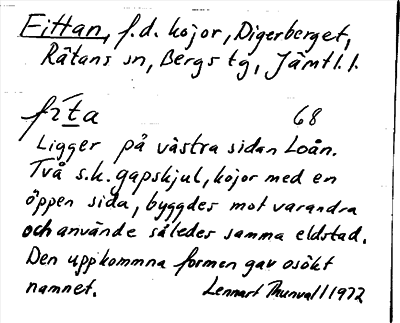 Fittan, f.d. kojor, Digerberget,
Rätans sn, Bergs tg, Jämtl. l.
fi´ta 68
Ligger på västra sidan Loån.
Två s.k. gapskjul, kojor med en
öppen sida, byggdes mot varandra
och använde således samma eldstad.
Den uppkommna formen gav osökt
namnet. Lennart Thunvall 1972